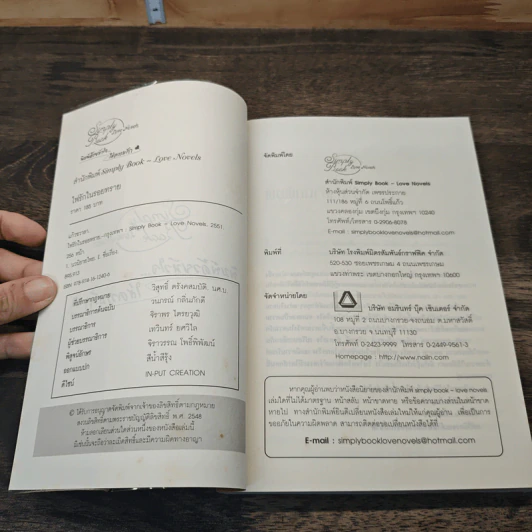 Simply Book
Love Novels
สำนักพิมพ์ Simply Book ~ Love Novels
ไฟรักในรอยทราย
ราคา 188 บาท
ไฟรักในรอยทราย.--กรุงเทพฯ : simply Book ~ Love Novels, 2551.
ที่ปรึกษากฎหมาย วิสุทธิ์ ตรังคสมบัติ, นศ.บ.
บรรณาธิการต้นฉบับ
บรรณาธิการ จิราพร ไตรยวุฒิ
ผู้ช่วยบรรณาธิการ เทวินทร์
พิสูจน์อักษร จิราวรรณ โพธิ์พิพัฒน์
ออกแบบปก สีน้ำสีรุ้ง
ดีไซน์ IN-PUT CREATION
© ได้รับการอนุญาตจัดพิมพ์จากเจ้าของลิขสิทธิ์ตามกฎหมาย
สงวนลิขสิทธิ์ตามพระราชบัญญัติลิขสิทธิ์ พ.ศ. 2548
ห้ามลอกเลียนส่วนใดส่วนหนึ่งของหนังสือเล่มนี้
มิเช่นนั้นจะถือว่าละเมิดลิขสิทธิ์และมีความผิดทางอาญา
จัดพิมพ์โดย
Simply Book
Love Novels
สำนักพิมพ์ Simply Book ~ Love Novels
ห้างหุ้นส่วนจำกัด เพชรประกาย
111/186 หมู่ที่ 6 ถนนโพธิ์แก้ว
แขวงคลองกุ่ม เขตบึงกุ่ม กรุงเทพฯ 10240
โทรศัพท์/โทรสาร 0-3906-8078
E-mail : simplybooklovenovels@hotmail.com
พิมพ์ที่ บริษัท โรงพิมพ์มิตรสัมพันธ์กราฟฟิค จำกัด
520-530 ซอยเพชรเกษม 4 ถนนเพชรเกษม
แขวงท่าพระ เขตบางกอกใหญ่ กรุงเทพฯ 10600
จัดจำหน่ายโดย
บริษัท อมรินทร์ บุ๊ค เซ็นเตอร์ จำกัด
108 หมู่ที่ 2 ถนนบางกรวย-จงถนอม ต.มหาสวัสดิ์
อ.บางกรวย จ.นนทบุรี 11130
โทรศัพท์ 0-2423-9999 โทรสาร 0-2449-9561-3
Homepage : http://www.naiin.com
หากคุณผู้อ่านพบว่าหนังสือนิยายของสำนักพิมพ์ simply book ~ love novels
เล่มใดที่ไม่ได้มาตรฐาน หน้าสลับ หน้าขาดหาย หรือข้อความบางส่วนในหน้าขาด
หายไป ทางสำนักพิมพ์ยินดีเปลี่ยนหนังสือเล่มใหม่ให้แก่คุณผู้อ่าน เพื่อเป็นการ
ขออภัยในความผิดพลาด สามารถติดต่อขอเปลี่ยนหนังสือได้ที่
E-mail : simplybooklovenovels@hotmail.com